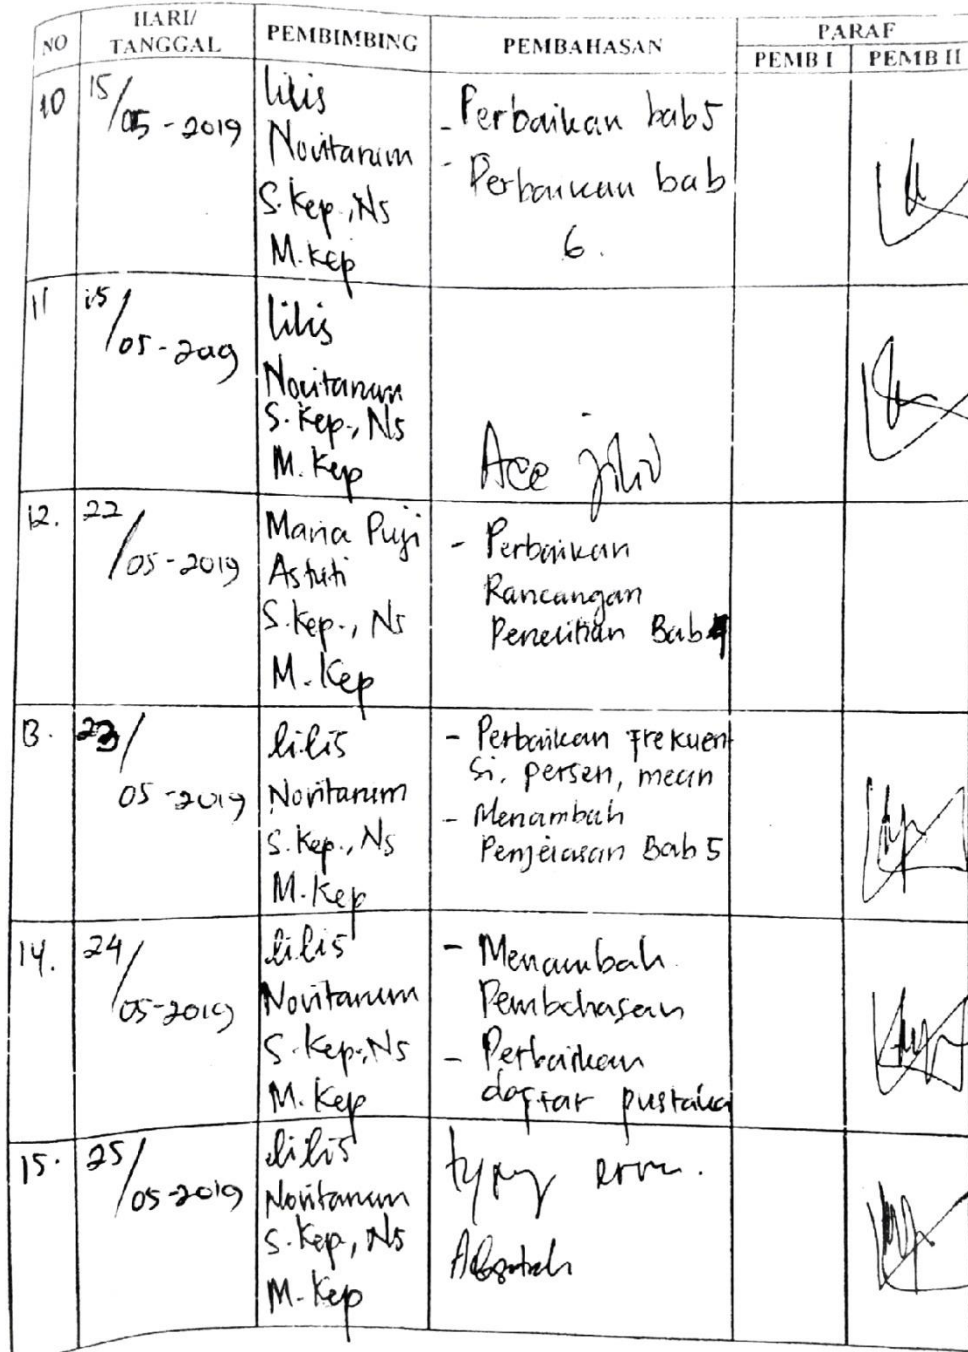 NO HARI/ TANGGAL PEMBIMBING PEMBAHASAN PARAF
PEMB I PEMB II
10 15/05-2019
lilis
Novitarum
S.Kep.,Ns
M.Kep
- Perbaikan bab5
- Perbaikan bab
6.
11 15/05-2019
lilis
Novitarum
S.Kep., Ns
M.Kep
Acc jilid
12. 22/05-2019
Maria Puji
Astuti
S.Kep., Ns
M.Kep
- Perbaikan
Rancangan
Penelitian Bab 4
13. 23/05-2019
lilis
Novitarum
S.Kep., Ns
M.Kep
- Perbaikan Frekuen
si, persen, mean
- Menambah
Penjelasan Bab 5
14. 24/05-2019
lilis
Novitarum
S.Kep,Ns
M.Kep
- Menambah
Pembahasan
- Perbaikan
daftar pustaka
15. 25/05-2019
lilis
Novitarum
S.Kep, Ns
M.Kep
typing error.
Abstrak